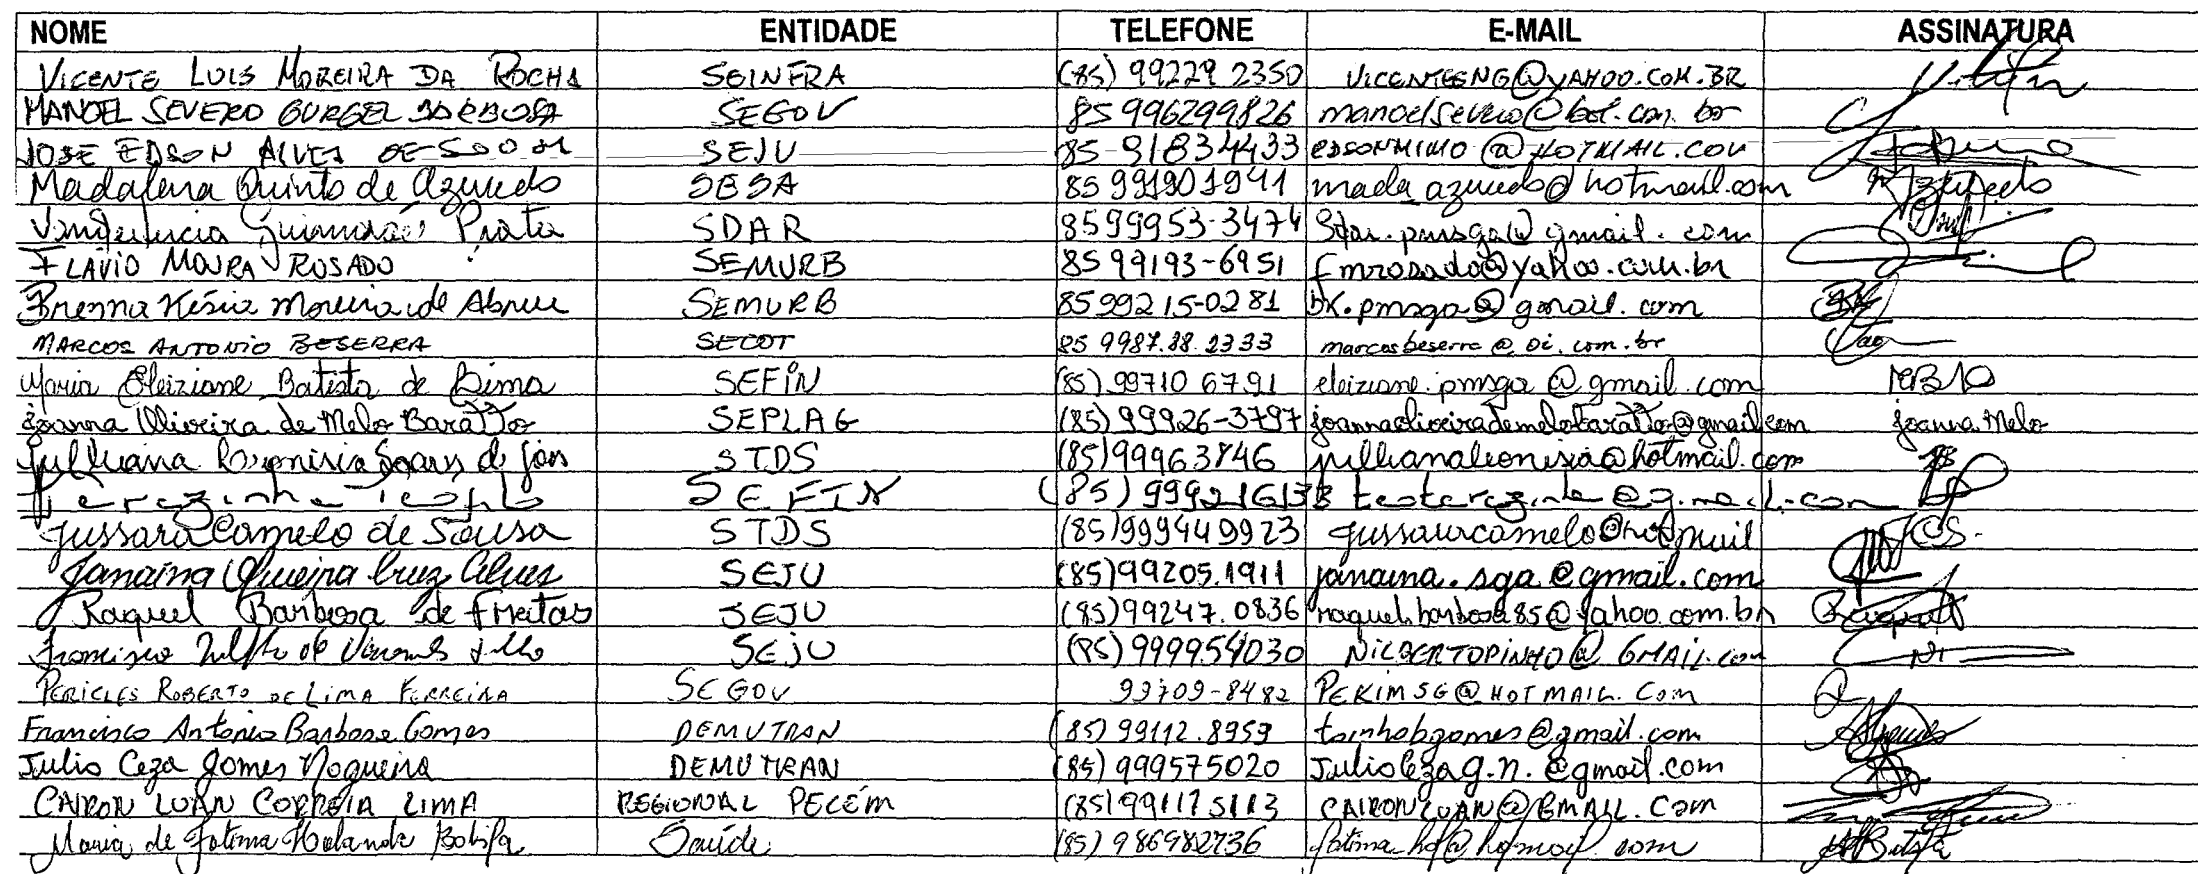 NOME ENTIDADE TELEFONE E-MAIL ASSINATURA
VICENTE LUIS MOREIRA DA ROCHA SEINFRA (85) 99229 2350 VICENTEENG@YAHOO.COM.BR
MANOEL SEVERO GURGEL BARBOSA SEGOV 85 996299826 manoelsevero@bol.com.br
JOSE EDSON ALVES DE SEJU 85-91834433 EDSONMIMO@HOTMAIL.COM
Madalena Quinto de Azevedo SESA 85 991901941 mada_azevedo@hotmail.com Azevedo
Guimarães Prata SDAR 8599953-3474 Sdar.pmsga@gmail.com
FLAVIO MOURA ROSADO SEMURB 85 99193-6951 fmrosado@yahoo.com.br
Brenna Késia Moreira de Abreu SEMURB 85 99215-0281 bk.pmsga@gmail.com
MARCOS ANTONIO BESERRA SECOT 85 9987.88.2333 marcosbeserra@oi.com.br
Maria Eleiziane Batista de Lima SEFIN (85) 99710 6791 eleiziane.pmsga@gmail.com
Joanna Oliveira de Melo Baratto SEPLAG (85) 99926-3797 joannaoliveirademelobaratto@gmail.com Joanna Melo
Jullyana Soares STDS (85) 99963746
Terezinha Teofilo SEFIN (85)
Jussara Camelo de Sousa STDS (85)999449923 JCS.
Janaina Oliveira Cruz Alves SEJU (85)99205.1911 janaina.sga@gmail.com
Raquel Barbosa de Freitas SEJU (85)99247.0836 raquel.barbosa85@yahoo.com.br
Francisco Filho SEJU (85) 999954030 NILBERTOPINHO@GMAIL.com
PERICLES ROBERTO DE LIMA FERREIRA SEGOV 99709-8482 PEKIMSG@HOTMAIL.Com
Francisco Antonio Barbosa Gomes DEMUTRAN (85) 99112.8959 toinhobgomes@gmail.com
Julio Ceza Gomes Nogueira DEMUTRAN (85) 999575020 Juliocezag.n.@gmail.com
CAIRON LUAN CORREIA LIMA REGIONAL PECÉM (85) 991175113 CAIRONLUAN@GMAIL.Com
Maria de Fatima Holanda Saúde (85) 986982736